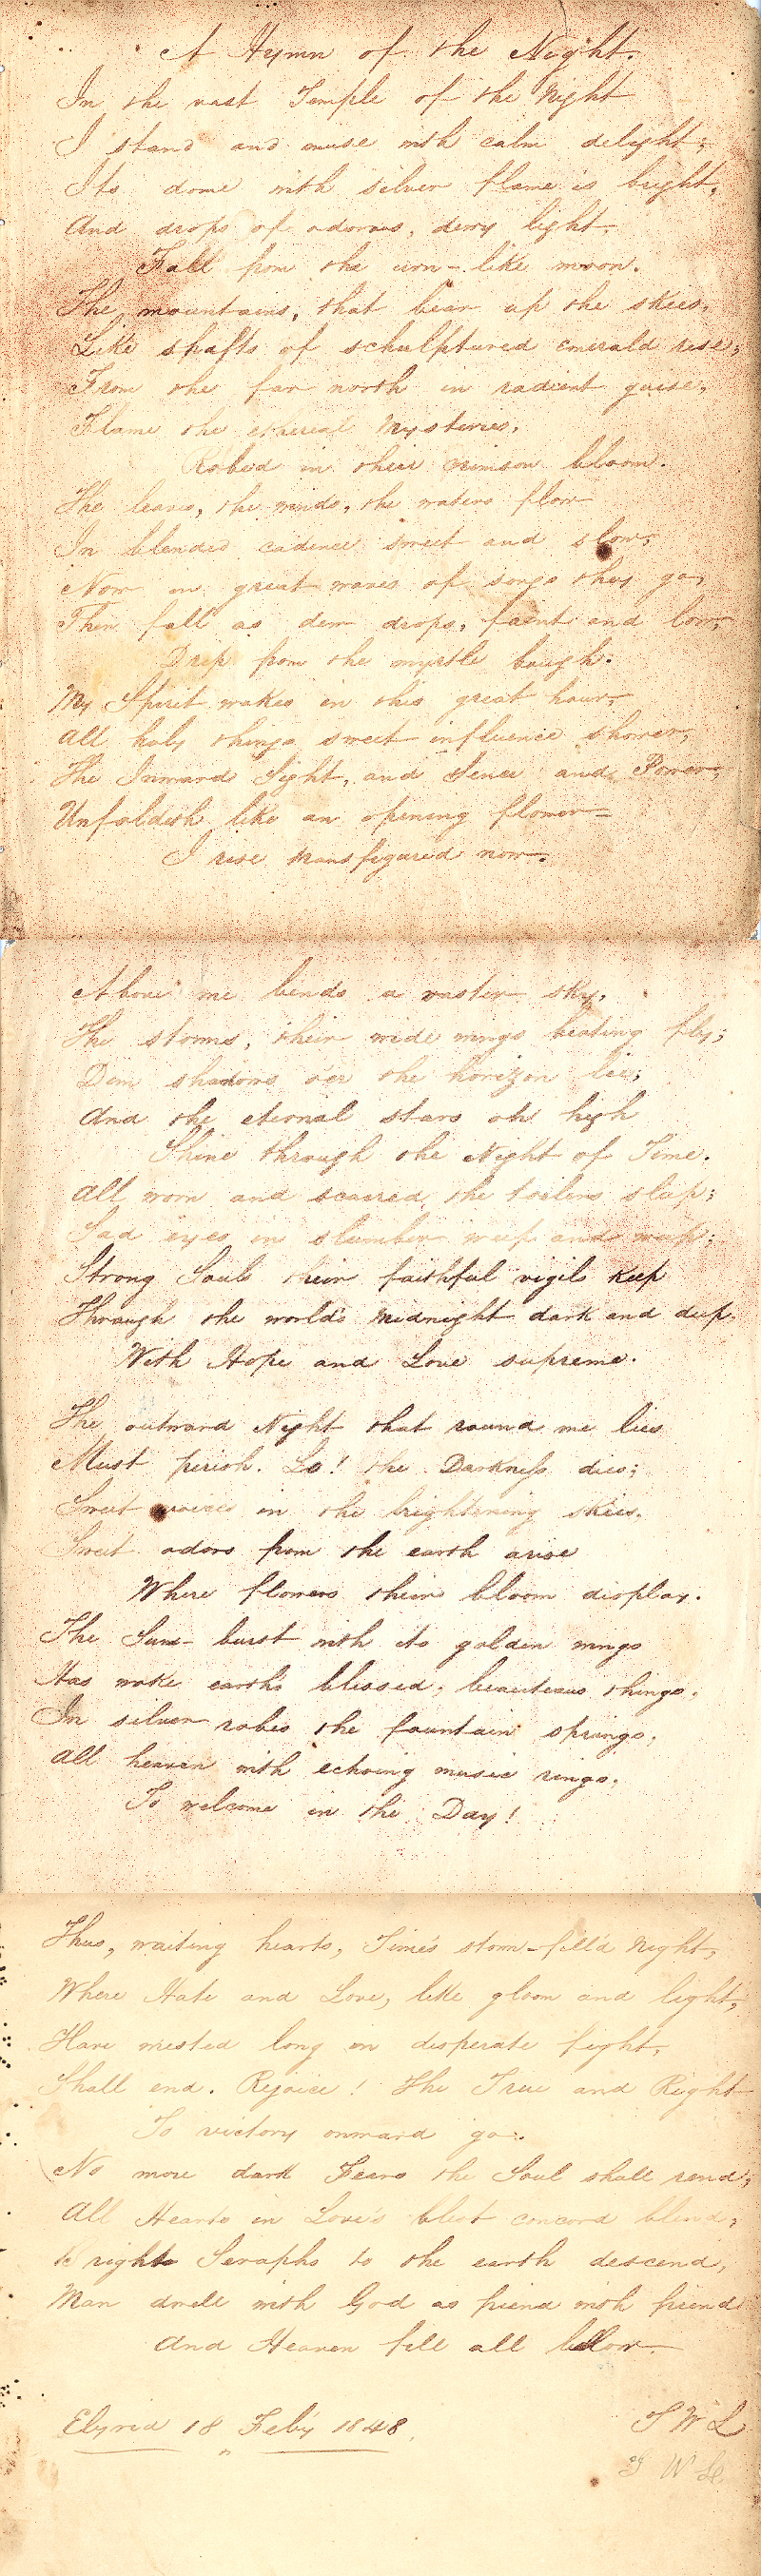 A Hymn of the Night.
In the vast Temple of the Night
I stand and muse with calm delight;
Its dome with silver flame is bright,
And drops of odorous, dewy light
Fall from the urn-like moon.
The mountains, that bear up the skies,
Like shafts of schulptured emerald rise;
From the far north in radient guise,
Flame the ethereal Mysteries,
Robed in their crimson bloom.
The leaves, the winds, the waters flow
In blended cadence sweet and slow;
Now in great waves of songs they go,
Then fall as dew drops, faint and low,
Drip from the myrtle bough.
My Spirit wakes in this great hour;
All holy things sweet influence shower;
The Inward Sight, and Sence and Power,
Unfoldeth like an opening flower—
I rise transfigured now.
Above me bends a vaster sky,
The storms, their wide wings beating fly;
Dim shadows o'er the horizon lie;
And the eternal stars on high
Shine through the Night of Time.
All worn and scarred, the toilers sleep;
Sad eyes in slumber weep and weep;
Strong Souls their faithful vigils keep
Through the world's midnight dark and deep.
With Hope and Love supreme.
The outward Night that round me lies
Must perish. Lo! the Darkness dies;
Sweet voices in the brightening skies.
Sweet odors from the earth arise
Where flowers their bloom display.
The Sun-burst with its golden wings
Has woke earth's blessed, beauteous things.
In silver robes the fountain springs,
All heaven with echoing music rings.
To welcome in the Day!
Thus, waiting hearts, Time's storm-fill'd Night,
Where Hate and Love, like gloom and light,
Have wrested long in desperate fight,
Shall end. Rejoice! The True and Right
To victory onward go.
No more dark Fears the Soul shall rend;
All Hearts in Love's blest concord blend;
Bright Seraphs to the earth descend,
Man dwell with God as friend with friend
And Heaven fill all below.
Elyria 18 Feby 1848.
T W L